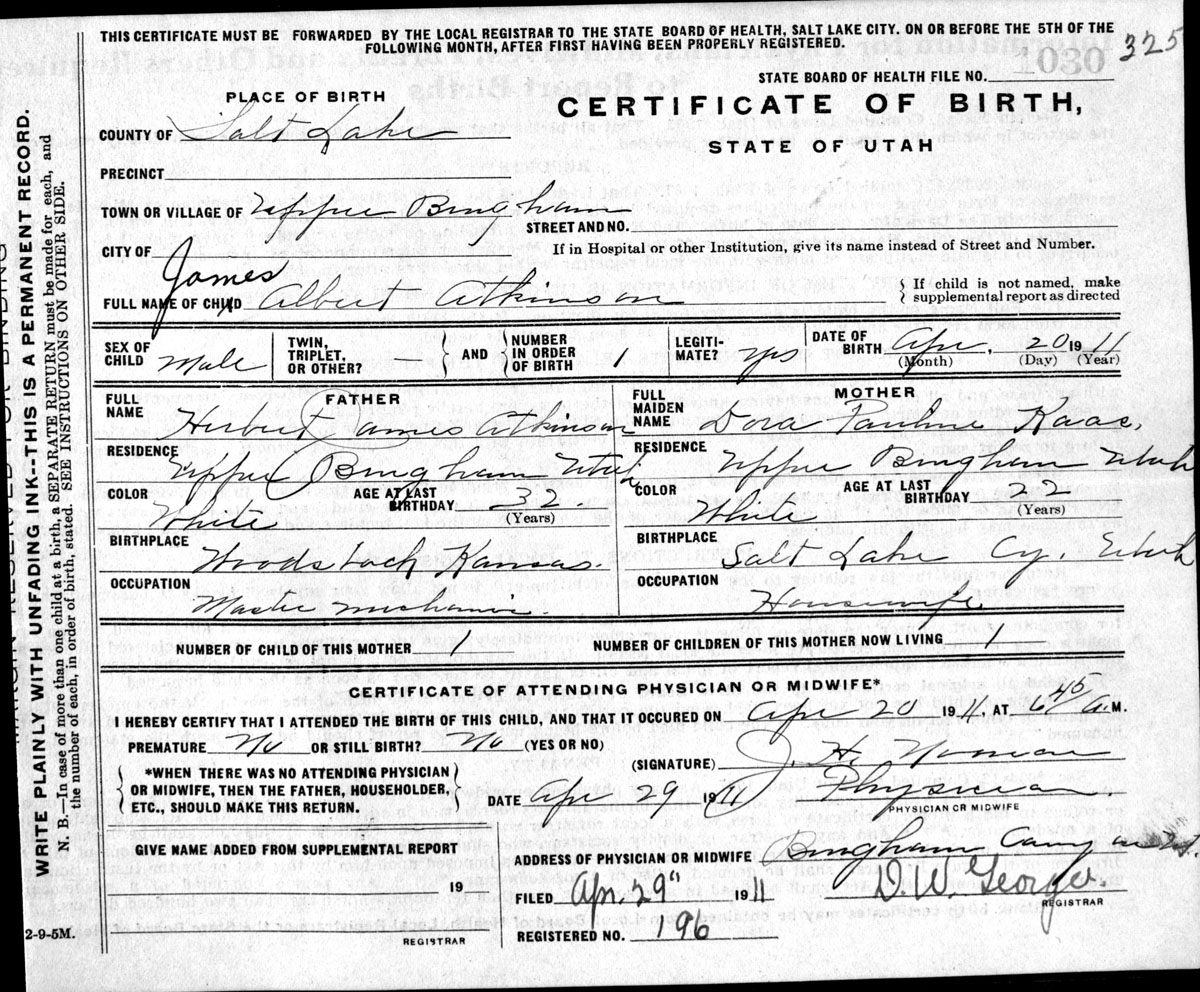 THIS CERTIFICATE MUST BE FORWARDED BY THE LOCAL REGISTRAR TO THE STATE BOARD OF HEALTH, SALT LAKE CITY. ON OR BEFORE THE 5TH OF THE
FOLLOWING MONTH, AFTER FIRST HAVING BEEN PROPERLY REGISTERED.
325
1030
STATE BOARD OF HEALTH FILE NO.
PLACE OF BIRTH
CERTIFICATE OF BIRTH,
STATE OF UTAH
COUNTY OF Salt Lake
PRECINCT
TOWN OR VILLAGE OF Upper Bingham
STREET AND NO.
CITY OF
If in Hospital or other Institution, give its name instead of Street and Number.
James
FULL NAME OF CHILD Albert Atkinson
If child is not named, make supplemental report as directed
SEX OF CHILD Male
TWIN, TRIPLET, OR OTHER? —
AND
NUMBER IN ORDER OF BIRTH 1
LEGITI-MATE? yes
DATE OF BIRTH Apr, 20 1911
(Month) (Day) (Year)
FATHER
FULL NAME Herbert James Atkinson
RESIDENCE Upper Bingham Utah
COLOR White
AGE AT LAST BIRTHDAY 32
(Years)
BIRTHPLACE Woodstock Kansas.
OCCUPATION
Master mechanic.
MOTHER
FULL MAIDEN NAME Dora Pauline Kaas,
RESIDENCE Upper Bingham Utah
COLOR White
AGE AT LAST BIRTHDAY 22
(Years)
BIRTHPLACE Salt Lake Cy. Utah
OCCUPATION
Housewife
NUMBER OF CHILD OF THIS MOTHER 1
NUMBER OF CHILDREN OF THIS MOTHER NOW LIVING 1
CERTIFICATE OF ATTENDING PHYSICIAN OR MIDWIFE*
I HEREBY CERTIFY THAT I ATTENDED THE BIRTH OF THIS CHILD, AND THAT IT OCCURED ON Apr 20 1911, AT 6 45 A.M.
PREMATURE No OR STILL BIRTH? No (YES OR NO)
(SIGNATURE) J. H.
*WHEN THERE WAS NO ATTENDING PHYSICIAN
OR MIDWIFE, THEN THE FATHER, HOUSEHOLDER,
ETC., SHOULD MAKE THIS RETURN.
DATE Apr 29 1911 Physician
PHYSICIAN OR MIDWIFE
GIVE NAME ADDED FROM SUPPLEMENTAL REPORT
19
REGISTRAR
ADDRESS OF PHYSICIAN OR MIDWIFE Bingham Canyon
FILED Apr. 29" 1911 D.W. George.
REGISTRAR
REGISTERED NO. 196
2-9-5M.
WRITE PLAINLY WITH UNFADING INK--THIS IS A PERMANENT RECORD.
N. B.—In case of more than one child at a birth, a SEPARATE RETURN must be made for each, and
the number of each, in order of birth, stated. SEE INSTRUCTIONS ON OTHER SIDE.